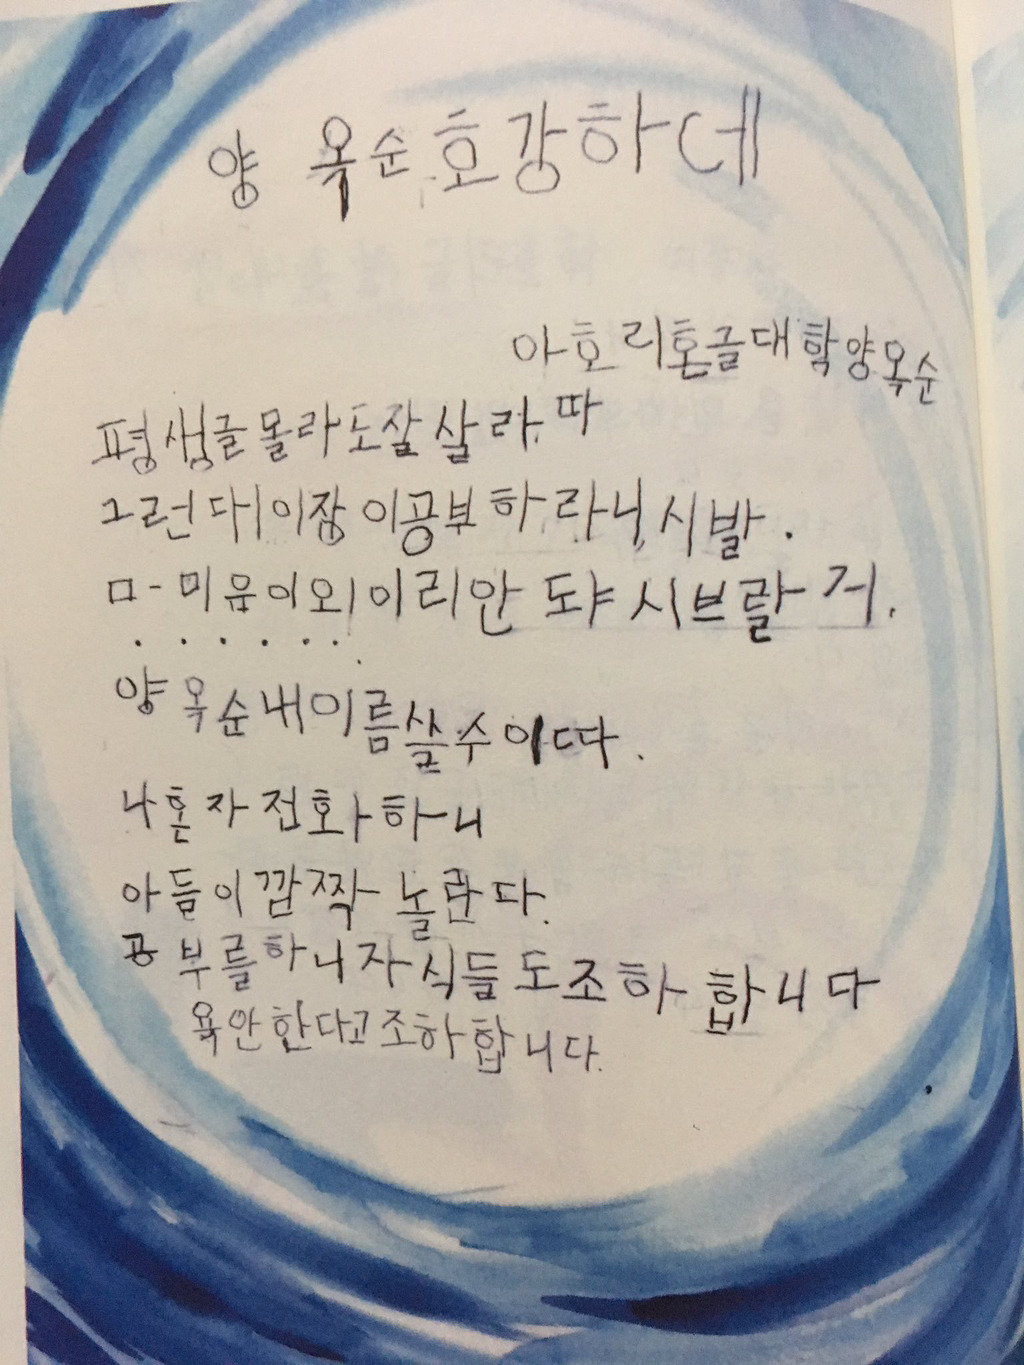 양 옥순 호강하데
아호리혼글대학양옥순
평생글몰라도잘살라.따
그런대이장이공부하라니,시발.
ㅁ-미음이외이리안 도냐 시브랄 거.
양옥순내이름쓸수이따.
나혼자전화하니
아들이깜짝놀란다.
공부를하니자식들도조하합니다
욕안한다고조하합니다.